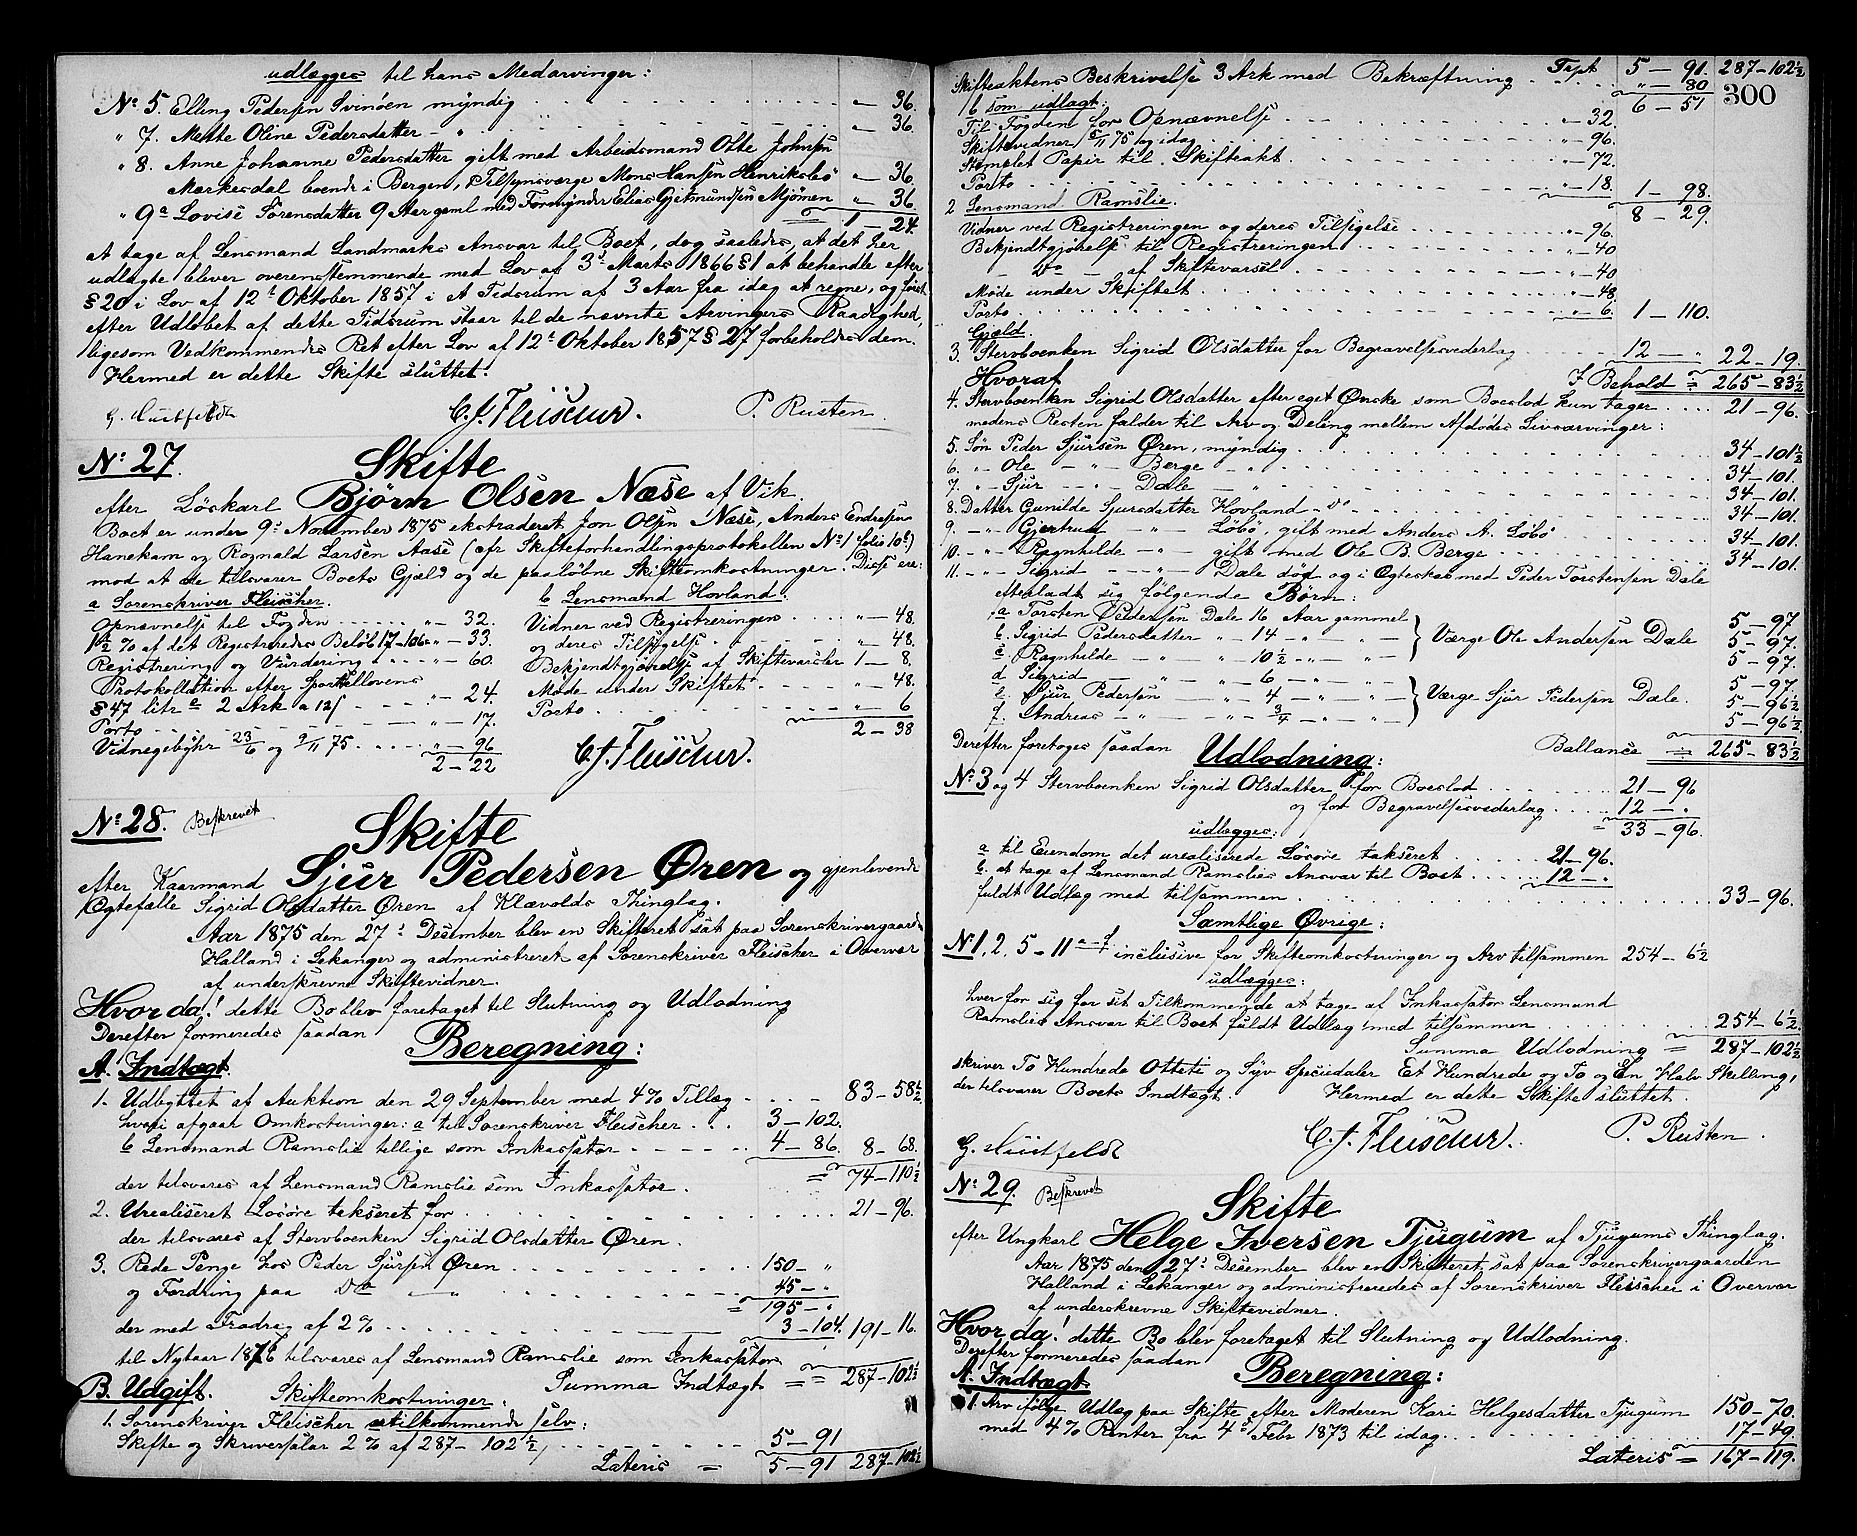 udlægges til hans Medarvinger:
No 5. Elling Pedersen Svinöen myndig " — 36.
" 7. Mette Oline Pedersdatter — " " — 36.
" 8. Anne Johanne Pedersdatter gift med Arbeidsmand Otte Johnsen
Markesdal boende i Bergen, Tilsynsværge Mons Hansen Henriksbö " — 36.
" 9a Lovise Sörensdatter 9 Aar gaml med Formynder Elias Gjetmundsen Mjömen " — 36
1 — 24.
at tage af Lensmand Landmarks Ansvar til Boet, dog saaledes, at det her
udlagte bliver overensstemmende med Lov af 3d Marts 1866 § 1 at behandle efter
§ 20 i Lov af 12t Oktober 1857 i et Tidsrum af 3 Aar fra idag at regne, og först
efter Udlöbet af dette Tidsrum staar til de nævnte Arvingers Raadighed,
ligesom Vedkommendes Ret efter Lov af 12t Oktober 1857 § 27 forbeholdes dem.
Hermed er dette Skifte sluttet.
C. J. Fleischer. P. Rusten
No 27. Skifte
efter Löskarl Björn Olsen Næse af Vik.
Boet er under 9d November 1875 ekstraderet Jon Olsen Næse, Anders Endresen
Hanekam og Rognald Larsen Aase (cfr Skifteforhandlingsprotokollen No 1 folio 10)
mod at de tilsvarer Boets Gjæld og de paalöbne Skifteomkostninger. Disse ere:
a Sorenskriver Fleischer.
Opnævnelse til Fogden " — 32.
1½ % af det Registreredes Belöb 17—106 " — 33.
Registrering og Vurdering " — 60.
Protokollation efter Sportellovens
§ 47 litr a 2 Ark a 12/ " — 24.
Porto " — 17.
Vidnegebyhr 23/6 og 9/11 75 " — 96
2 — 22
b Lensmand Hovland.
Vidner ved Registreringen " — 48.
og deres Tilsigelse " — 48.
Bekjendtgjörelse af Skiftevarsler 1 — 8.
Møde under Skiftet " — 48.
Porto " — 6
2 — 38
C. J. Fleischer.
No 28. Beskrevet Skifte
efter Kaarmand Sjur Pedersen Øren og gjenlevende
Ægtefælle Sigrid Olsdatter Øren af Klævolds Thinglag.
Aar 1875 den 27d December blev en Skifteret sat paa Sorenskrivergaarden
Halland i Lekanger og administreret af Sorenskriver Fleischer i Overvær
af underskrevne Skiftevidner.
Hvor da! dette Bo blev foretaget til Slutning og Udlodning
Derefter formeredes saadan Beregning:
A. Indtægt.
1. Udbyttet af Auktion den 29 September med 4% Tillæg 83 — 58½
hvori afgaar Omkostninger: a til Sorenskriver Fleischer 3 — 102.
b Lensmand Ramslie tillige som Inkassator 4 — 86. 8 — 68.
der tilsvares af Lensmand Ramslie som Inkassator. = 74 — 110½
2. Urealiseret Lösöre takseret for 21 — 96.
der tilsvares af Stervboenken Sigrid Olsdatter Øren.
3. Rede Penge hos Peder Sjursen Øren 150 — "
og Fordring paa do — " 45 — "
= 195 — "
der med Fradrag af 2% 3 — 104. 191 — 16.
til Nytaar 1876 tilsvares af Lensmand Ramslie som Inkassator
Summa Indtægt = 287 — 102½
B. Udgift. Skifteomkostninger.
1. Sorenskriver Fleischer tilkommende selv:
Skifte og Skriversalær 2% af 287 — 102½ 5 — 91
Lateris = 5 — 91 287 — 102½
300
Trpt 5 — 91. 287 — 102½
Skifteaktens Beskrivelse 3 Ark med Bekræftning " — 80
6 — 51
b som udlagt:
Til Fogden for Opnævnelse " — 32.
Skiftevidner 5/11 75 og idag " — 96.
Stemplet Papir til Skifteakt " — 72.
Porto " — 18. 1 — 98.
8 — 29.
2 Lensmand Ramslie.
Vidner ved Registreringen og deres Tilsigelse " — 96.
Bekjendtgjörelse til Registreringen " — 40
— do — af Skiftevarsel " — 40
Møde under Skiftet " — 48.
Porto " — 6. 1 — 110.
Gjæld.
3. Stervboenken Sigrid Olsdatter for Begravelsesvederlag 12 — " 22 — 19.
Hvoraf I Behold = 265 — 83½
4. Stervboenken Sigrid Olsdatter efter eget Ønske som Boeslod kun tager 21 — 96.
medens Resten falder til Arv og Deling mellem Afdödes Livsarvinger:
5. Sön Peder Sjursen Øren, myndig 34 — 101½
6. " Ole — " — Berge — " 34 — 101.
7. " Sjur — " — Dale — " 34 — 101.
8. Datter Gunilde Sjursdatter Hovland do 34 — 101.
9. — " Gjertrud — " — Löbö, gift med Anders A. Löbö 34 — 101.
10. — " Ragnhilde — " — gift med Ole B. Berge 34 — 101.
11. — " Sigrid — " — Dale död og i Ægteskab med Peder Torstensen Dale
efterladt sig følgende Börn:
a Torsten Pedersen Dale 16 Aar gammel 5 — 97
b. Sigrid Pedersdatter " 14 — " — " Værge Ole Andersen Dale 5 — 97.
c. Ragnhilde — " — " 10½ — " — " 5 — 97.
d Sigrid — " — " 6 — " — " 5 — 97
e. Sjur Pedersen " 4 — " — " Værge Sjur Pedersen Dale. 5 — 96½
f. Andreas — " — " ¾ — " — " 5 — 96½
Derefter foretoges saadan Ballance = 265 — 83½
Udlodning:
No 3 og 4 Stervboenken Sigrid Olsdatter for Boeslod 21 — 96
og for Begravelsesvederlag 12 — "
= 33 — 96.
udlægges:
a til Eiendom det urealiserede Lösöre takseret 21 — 96.
b. at tage af Lensmand Ramslies Ansvar til Boet 12 — "
fuldt Udlæg med tilsammen 33 — 96.
Samtlige Øvrige:
No 1, 2, 5 — 11 a — f inclusive for Skifteomkostninger og Arv tilsammen 254 — 6½
udlægges:
hver for sig for sit Tilkommende at tage af Inkassator Lensmand
Ramslies Ansvar til Boet fuldt Udlæg med tilsammen 254 — 6½
Summa Udlodning = 287 — 102½
skriver To Hundrede Otteti og Syv Speciedaler Et Hundrede og To og En Halv Skilling,
der tilsvarer Boets Indtægt. Hermed er dette Skifte sluttet.
C. J. Fleischer. P. Rusten.
No 29. Beskrevet Skifte
efter Ungkarl Helge Iversen Tjugum af Tjugums Thinglag.
Aar 1875 den 27d December blev en Skifteret sat paa Sorenskrivergaarden
Halland i Lekanger og administreredes af Sorenskriver Fleischer i Overvær
af underskrevne Skiftevidner.
Hvor da! dette Bo blev foretaget til Slutning og Udlodning.
Derefter formeredes saadan Beregning:
A. Indtægt
1. Arv ifölge Udlæg paa Skifte efter Moderen Kari Helgesdatter Tjugum 150 — 70.
med 4% Renter fra 4d Febr 1873 til idag 17 — 49.
Lateris = 167 — 119.